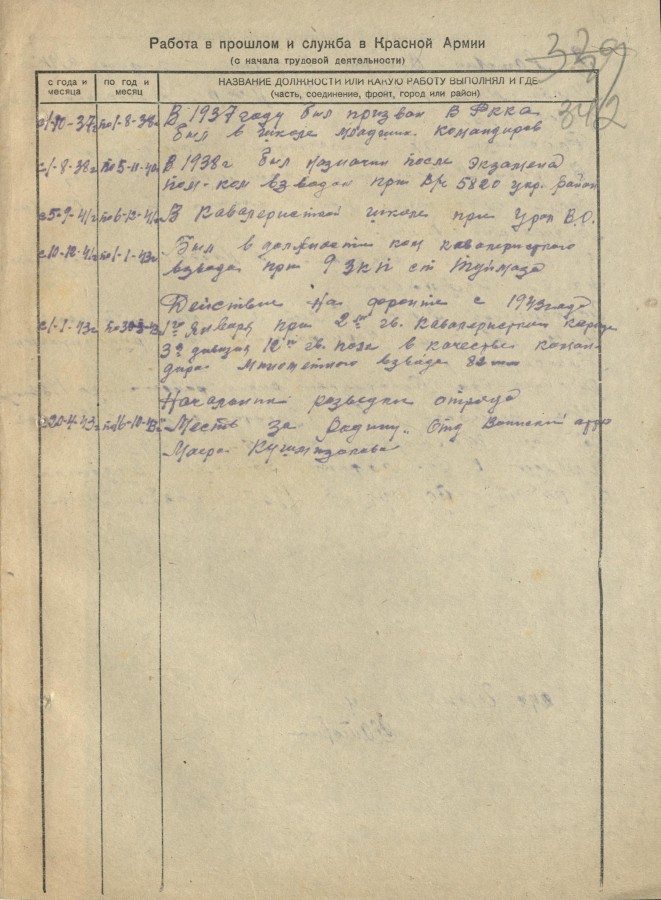 Работа в прошлом и служба в Красной Армии
(с начала трудовой деятельности)
с года и месяца
по год и месяц
НАЗВАНИЕ ДОЛЖНОСТИ ИЛИ КАКУЮ РАБОТУ ВЫПОЛНЯЛ И ГДЕ
(часть, соединение, фронт, город или район)
342
с/1-10-37г по 1-8-38г В 1937 году был призван в Ркка
был в школе младших командиров
с/1-8-38г по 5-11-41г В 1938г был назначен после экзамена
пом-ком взвода при В/ч 5820 укр. район
с 5-9-41г по 6-12-41г В Кавалеристкой школе при Урал В.О.
с 10-12-41г по 1-1-43г Был в должности ком кавалериского
взвода при 9 ЗКП ст Туймаза
Действие на фронте с 1943 года
с/1-1-43г 1го Января при 2ом гв. Кавалеристком корпусе
3й дивизия 12го гв. полк в качестве коман-
дира минометного взвода 82 мм
Начальник разведки отряда
с 20-4-43г по 16-10-43г Месть за Родину„ Отд
Маера